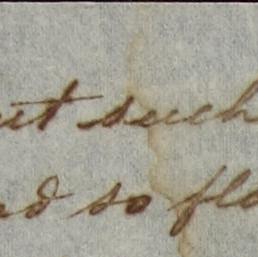 ut such
ad so fla